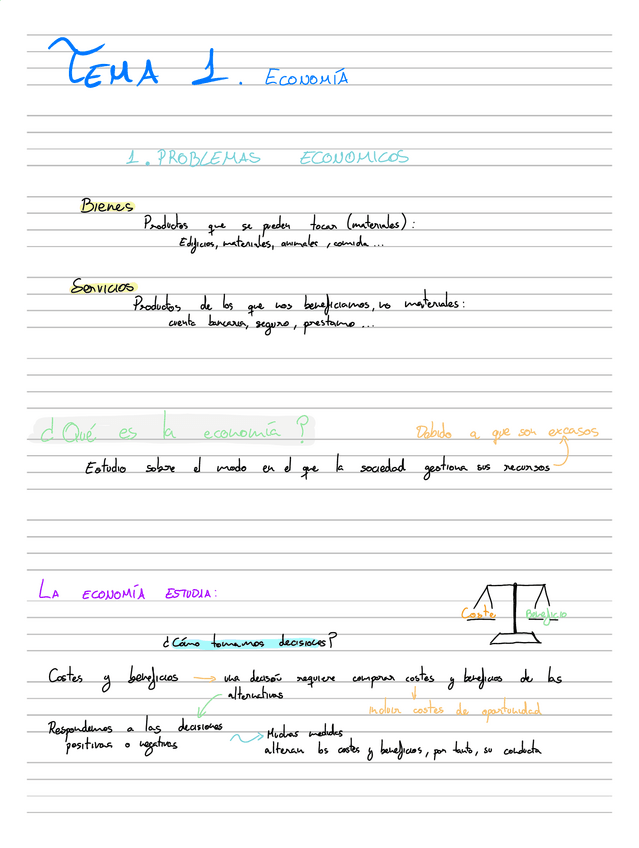 TEMA 1. ECONOMÍA
1. PROBLEMAS ECONOMICOS
Bienes
Productos que se pueden tocar (materiales):
Edificios, materiales, animales, comida...
Servicios
Productos de los que nos beneficiamos, no materiales:
cuenta bancaria, seguro, prestamo...
¿Qué es la economía?
Debido a que son excasos
Estudio sobre el modo en el que la sociedad gestiona sus recursos
LA ECONOMÍA ESTUDIA:
Coste Beneficio
¿Cómo tomamos decisiones?
Costes y beneficios → una decisión requiere comparar costes y beneficios de las
alternativas
incluir costes de oportunidad
Respondemos a las decisiones
positivas o negativas
Muchas medidas
alteran los costes y beneficios, por tanto, su conducta